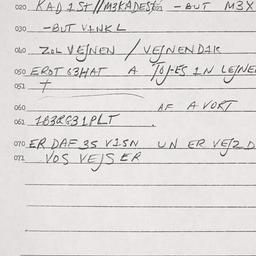 020 KAD1ST//M3KADEST -BUT M3X
030 -BUT VINKL
040 ZOL VEJNEN / VEJNENDIR
050 EROT G3HAT A TOJ-ES IN LEJNE
051 +
060 AF A VORT
061 1B3RG31PLT
070 ER DAF 3S VISN UN ER VEJ2 D
071 VOS VEJS ER